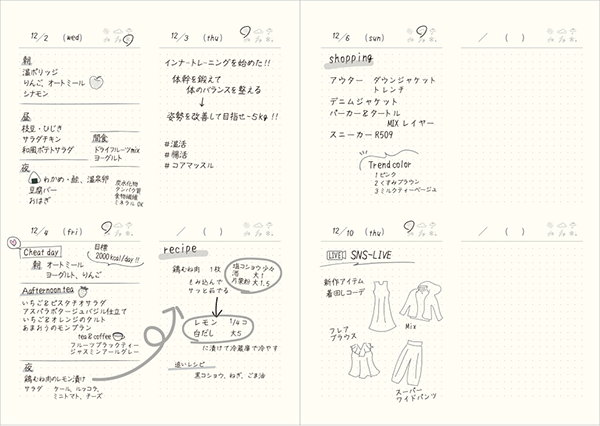 12/2 (wed)
朝
温ポリッジ
りんご、オートミール
シナモン
昼
枝豆・ひじき
サラダチキン
和風ポテトサラダ
間食
ドライフルーツmix
ヨーグルト
夜
わかめ・鮭、温泉卵
豆腐バー
おはぎ
炭水化物
タンパク質
食物繊維
ミネラル OK
12/3 (thu)
インナートレーニングを始めた!!
体幹を鍛えて
体のバランスを整える
↓
姿勢を改善して目指せ-5kg!!
#温活
#腸活
#コアマッスル
12/4 (fri)
Cheat day
目標
2000kcal/day!!
朝 オートミール
ヨーグルト、りんご
Aafternoon tea
いちご&ピスタチオサラダ
アスパラポタージュバジル仕立て
いちご&オレンジのタルト
あまおうのモンブラン
tea&coffee
フルーツブラックティー
ジャスミンアールグレー
夜
鶏むね肉のレモン漬け
サラダ ケール、ルッコラ、
ミニトマト、チーズ
/ ( )
recipe
鶏むね肉 1枚
塩コショウ少々
酒 大1
片栗粉 大1.5
もみ込んで
サッと茹でる
レモン 1/4コ
白だし 大5
に漬けて冷蔵庫で冷やす
追いレシピ
黒コショウ、ねぎ、ごま油
12/6 (sun)
shopping
アウター ダウンジャケット
トレンチ
デニムジャケット
パーカー&タートル
MIX レイヤー
スニーカー R509
Trend color
1 ピンク
2 くすみブラウン
3 ミルクティーベージュ
/ ( )
12/10 (thu)
LIVE SNS-LIVE
新作アイテム
着回しコーデ
Mix
フレア
ブラウス
スーパー
ワイドパンツ
/ ( )